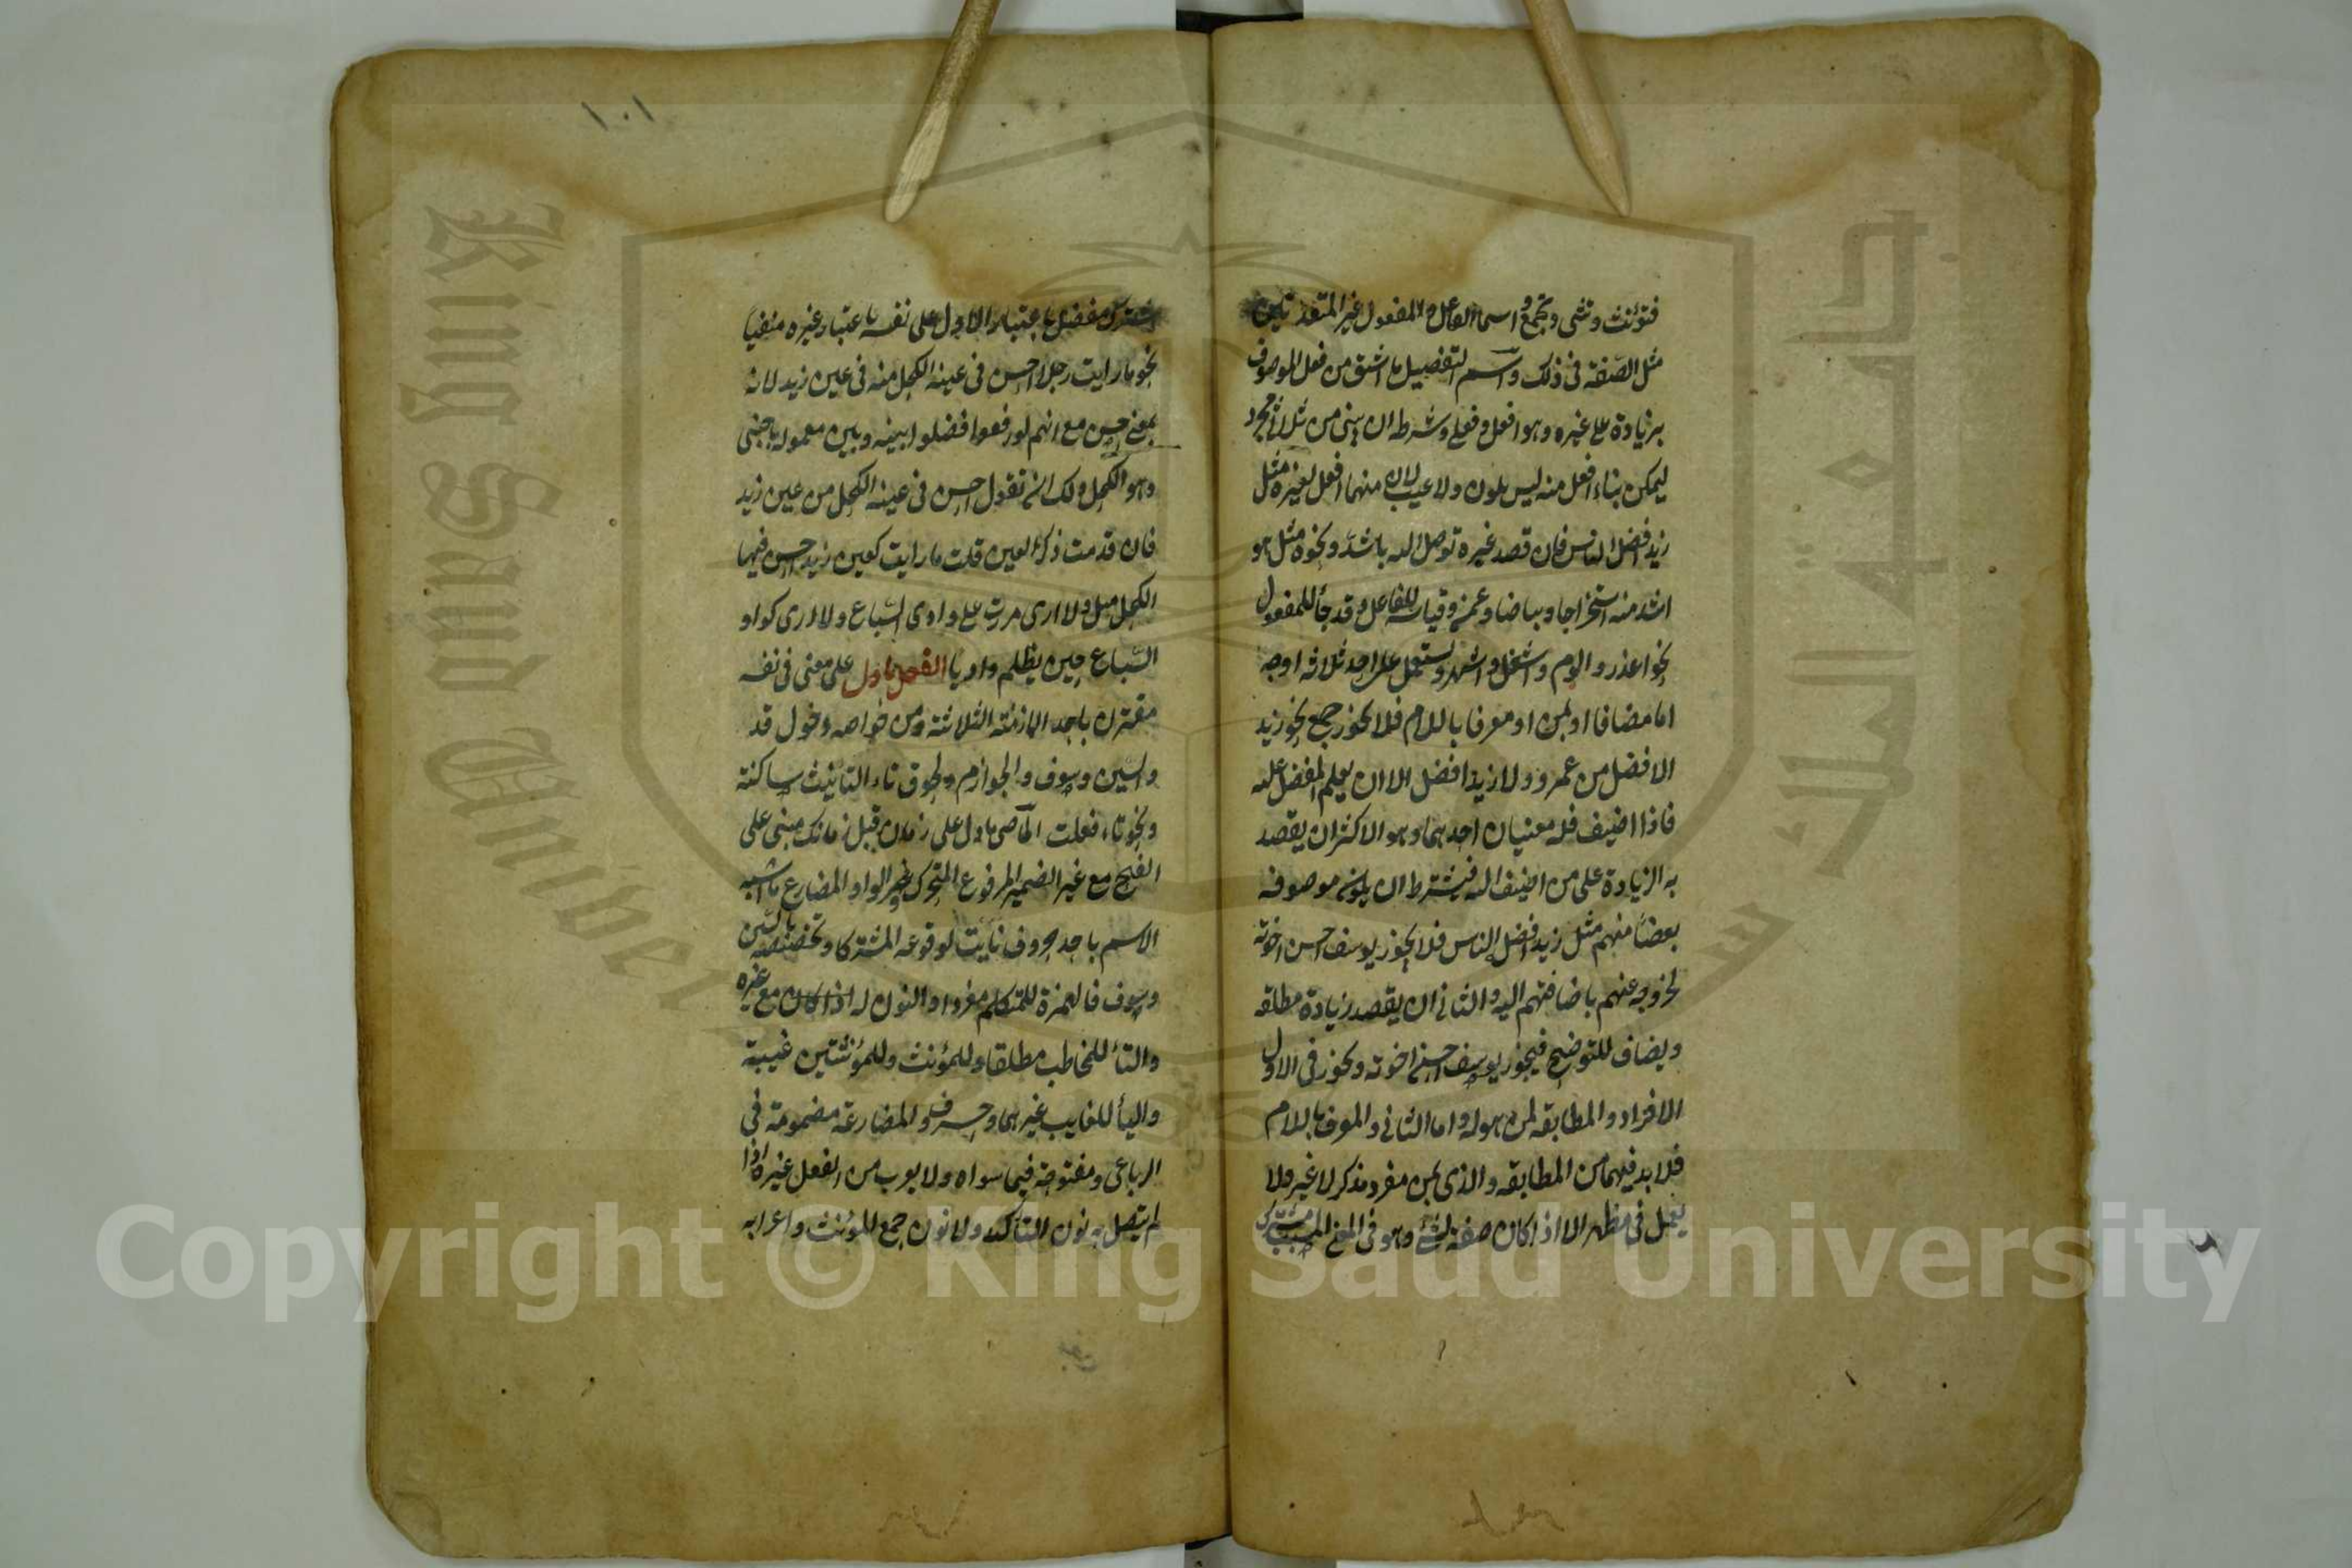 فتؤنث وتثنى وتجمع واسما الفاعل والمفعول غير المتعديين
مثل الصفة فى ذلك واسم التفضيل ما اشتق من فعل لموصوف
بزيادة على غيره وهو افعل وفعلى وشرطه ان يبنى من ثلاثى مجرد
ليمكن بناء افعل منه ليس بلون ولا عيب لان منهما افعل لغيره مثل
زيد افضل الناس فان قصد غيره توصل اليه باشد ونحوه مثل هو
اشد منه استخراجا وبياضا وعمى وقياسه للفاعل وقد جاء للمفعول
نحو اعذر والوم واشغل واشهر ويستعمل على احد ثلاثة اوجه
اما مضافا او بمن او معرفا باللام فلا يجوز جمع نحو زيد
الافضل من عمرو ولا زيد افضل الا ان يعلم المفضل عليه
فاذا اضيف فله معنيان احدهما وهو الاكثر ان يقصد
به الزيادة على من اضيف اليه فيشترط ان يكون موصوفه
بعضا منهم مثل زيد افضل الناس فلا يجوز يوسف احسن اخوته
لخروجه عنهم باضافتهم اليه والثانى ان يقصد زيادة مطلقه
ويضاف للتوضيح فيجوز يوسف احسن اخوته ويجوز فى الاول
الافراد والمطابقه لمن هو له واما الثانى والمعرف باللام
فلا بد فيهما من المطابقه والذى بمن مفرد مذكر لا غير ولا
يعمل فى مظهر الا اذا كان صفة لشئ وهو فى المعنى لمسبب
مشترك مفضل باعتبار الاول على نفسه باعتبار غيره منفيا
نحو ما رايت رجلا احسن فى عينه الكحل منه فى عين زيد لانه
بمعنى حسن مع انهم لو رفعوا فصلوا بينه وبين معموله باجنبى
وهو الكحل ولك ان تقول احسن فى عينه الكحل من عين زيد
فان قدمت ذكر العين قلت ما رايت كعين زيد احسن فيها
الكحل مثل ولا ارى مررت على وادى السباع ولا ارى كوادى
السباع حين يظلم واديا الفعل ما دل على معنى فى نفسه
مقترن باحد الازمنة الثلاثة ومن خواصه دخول قد
والسين وسوف والجوازم ولحوق تاء التانيث ساكنة
ونحو تاء فعلت الماضى ما دل على زمان قبل زمانك مبنى على
الفتح مع غير الضمير المرفوع المتحرك وغير الواو المضارع ما اشبه
الاسم باحد حروف نايت لوقوعه مشتركا وتخصيصه بالسين
وسوف فالهمزة للمتكلم مفردا والنون له اذا كان مع غيره
والتاء للمخاطب مطلقا وللمؤنث وللمؤنثتين غيبة
والياء للغايب غيرهما وحروف المضارعة مضمومة فى
الرباعى ومفتوحة فيما سواه ولا يعرب من الفعل غيره اذا
لم يتصل به نون التاكيد ولا نون جمع المؤنث واعرابه
١٠١
King Saud University
Copyright © King Saud University